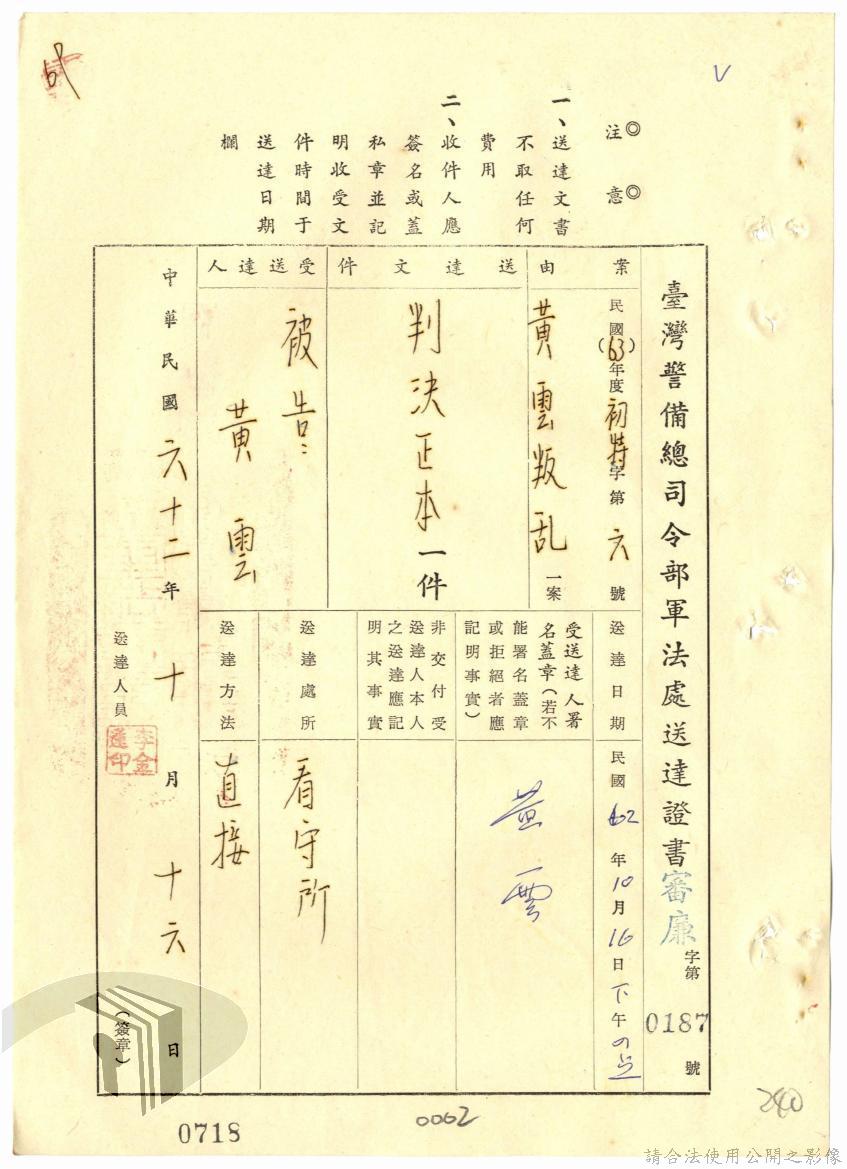 ◎注意◎
一、送達文書
不取任何
費用
二、收件人應
簽名或蓋
私章並記
明收受文
件時間于
送達日期
欄
臺灣警備總司令部軍法處送達證書審廉字第0187號
案由
民國(63)年度初特字第六號
黃雲叛乱一案
送達文件
判决正本一件
受送達人
被告:
黃雲
送達日期
民國62年10月16日下午
受送達人署
名蓋章(若不
能署名蓋章
或拒絕者應
記明事實)
黃雲
非交付受
送達人本人
之送達應記
明其事實
送達處所
看守所
送達方法
直接
中華民國六十二年十月十六日
送達人員
李金蓬印
(簽章)
0718
0062
240
V
請合法使用公開之影像